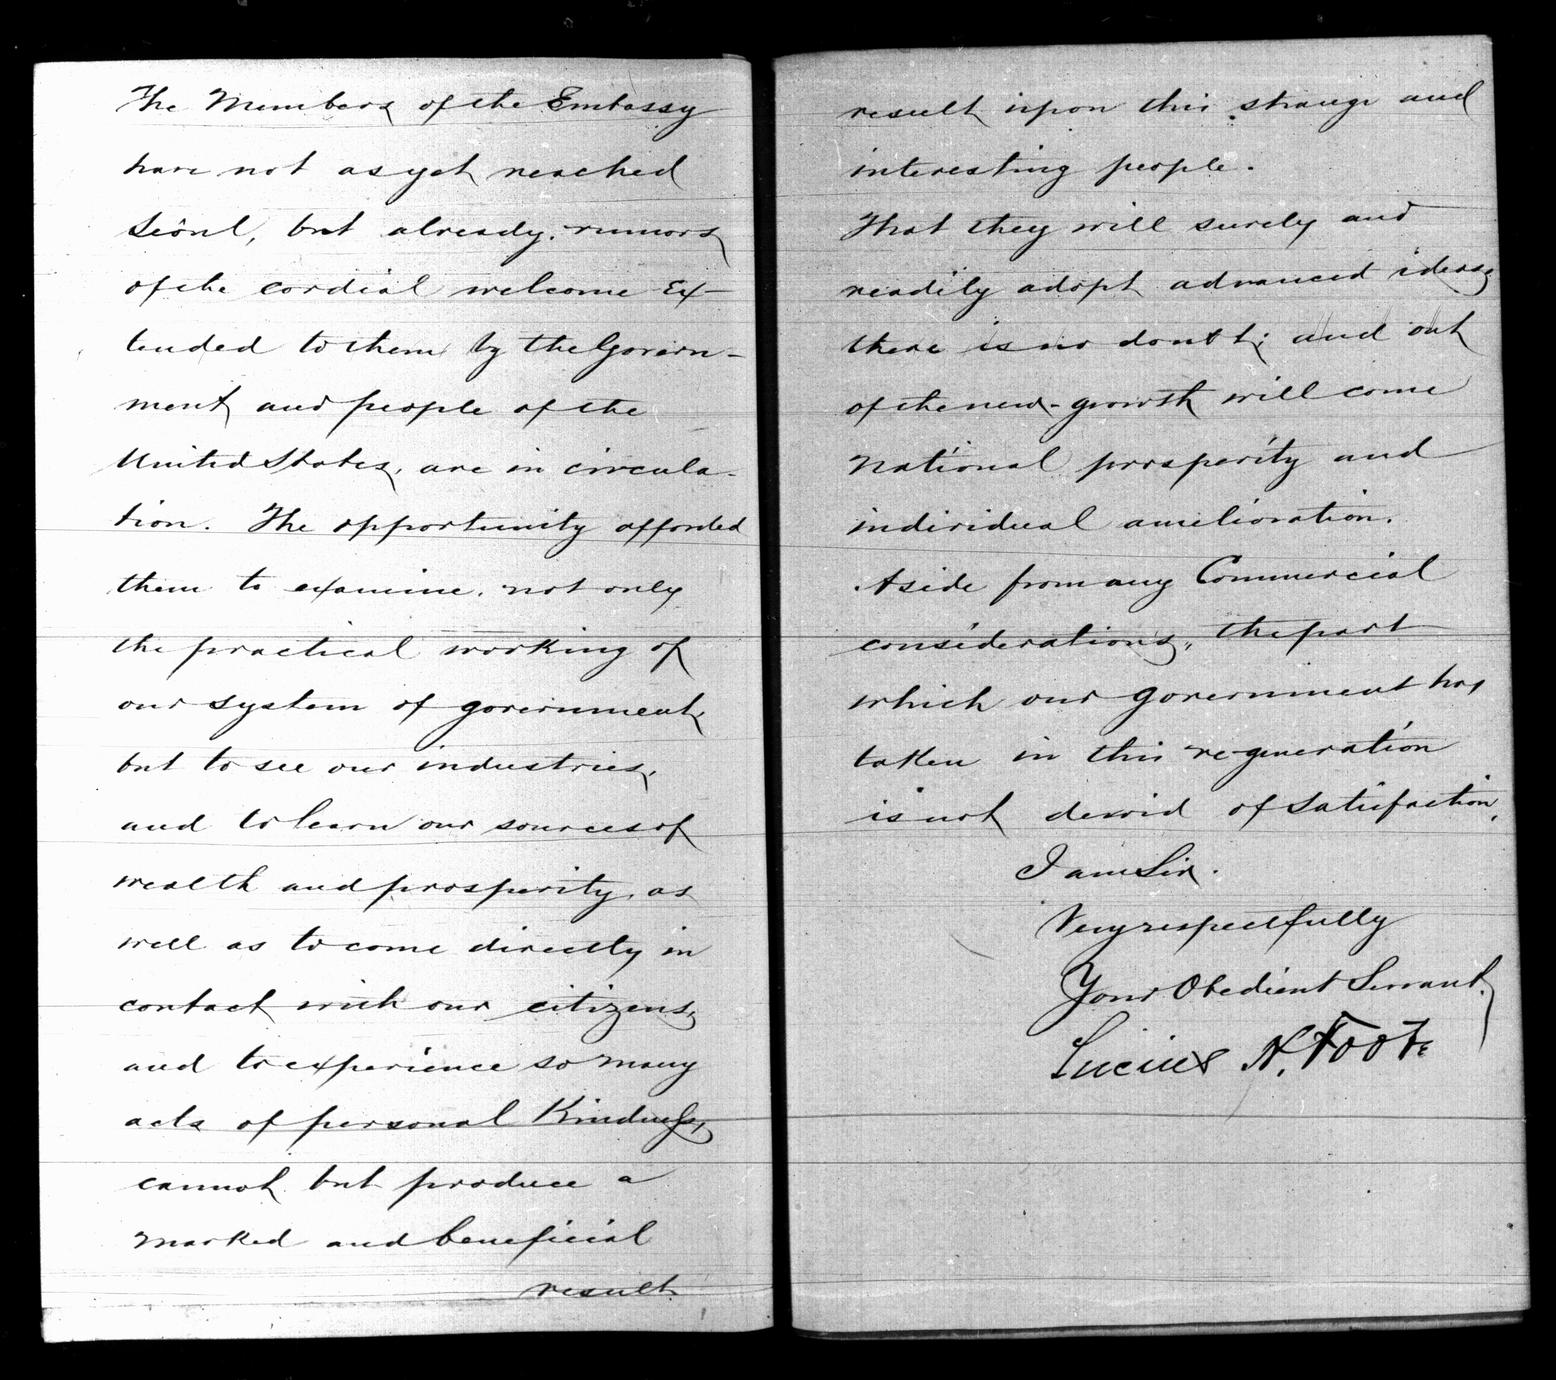 The Members of the Embassy
have not as yet reached
Seôul, but already, rumors
of the cordial welcome Ex-
tended to them by the Govern-
ment and people of the
United States, are in circula-
tion. The opportunity afforded
them to examine, not only
the practical working of
our system of government,
but to see our industries,
and to learn our sources of
wealth and prosperity, as
well as to come directly in
contact with our citizens,
and to experience so many
acts of personal Kindness,
cannot but produce a
marked and beneficial
result
result upon this strange and
interesting people.
That they will surely and
readily adopt advanced ideas,
there is no doubt; and out
of the new-growth will come
national prosperity and
individual amelioration.
Aside from any Commercial
considerations, the part
which our government has
taken in this re-generation
is not devoid of satisfaction,
I am Sir.
Very respectfully
Your Obedient Servant,
Lucius H. Foote